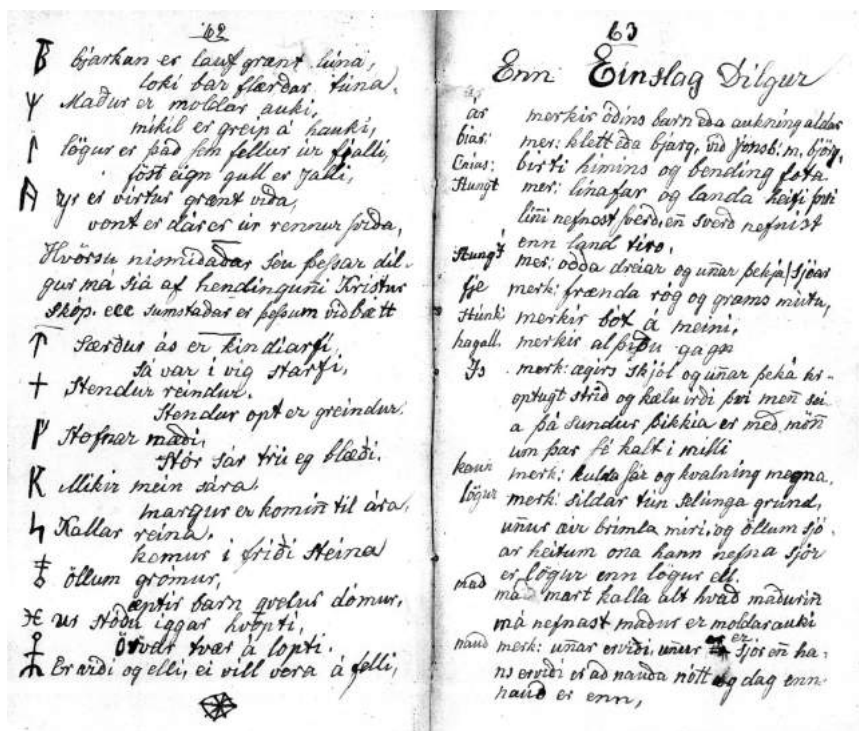 62
ᛒ bjarkan er lauf grænt lúna,
loki bar flærdar túna.
ᛘ Madur er moldar auki,
mikil er greip á hauki,
ᛚ lögur er þad sem fellur úr fjalli,
föst eign gull er Jalli,
yr er virtur grænt vida,
vont er dár er úr rennur þrida,
Hvörsu nismidadar séu þessar dil-
gur má siá af hendinguni Kristur
skóp. ecc sumstadar er þessum vidbætt
ᛏ Særdur ás er kindiarfi,
Sá var i vig starfi,
ᚽ Stendur reindur.
Stendur opt er greindur.
ᚠ Stofnar mædi,
Stór sár trú eg blædi.
K Mikir mein sára,
margur er komin til ára,
ᛋ Kallar reina,
komur i fridi steina
öllum grómur,
æptir barn qvelur dómur,
ur stódu iggar hvopti,
örvar tvær á lopti.
Ervidi og elli, ei vill vera á felli,
63
Enn Einslag Dilgur
ár merkir ódins barn eda aukning aldar
biar: mer: klett eda bjarg, vid Jonsb: m, björg,
birti himins og bending fota
Stungt mer: linafar og landa heiti þvi
lini nefnast sverd en sverd nefnist
enn land tirs,
Stungt mer: odda dreiar og unar þekja sjóar
fje merk: frænda róg og grams mutu,
Stunk: merkir bot á meini,
hagall. merkir alþidu gagn
Js merk: ægirs skjól og unar þeká kr-
optugt strid og kælu irdi þvi men sei-
a þá sundur þikkia er med món
um þar fé kalt i milli
kaun merk: kulda sár og kvalning megna,
lögur merk: sildar tún selúnga grund,
unur ævr brimla miri, og öllum sjó
ar heitum ona hann nefna sjór
er lögur enn lögur ell.
mad má mart kalla alt hvad madurin
má nefnast madur er moldar auki
naud merk: unar ervidi, unur er sjór en ha-
ns ervidi er ad nauda nótt og dag enn
naud er enn,